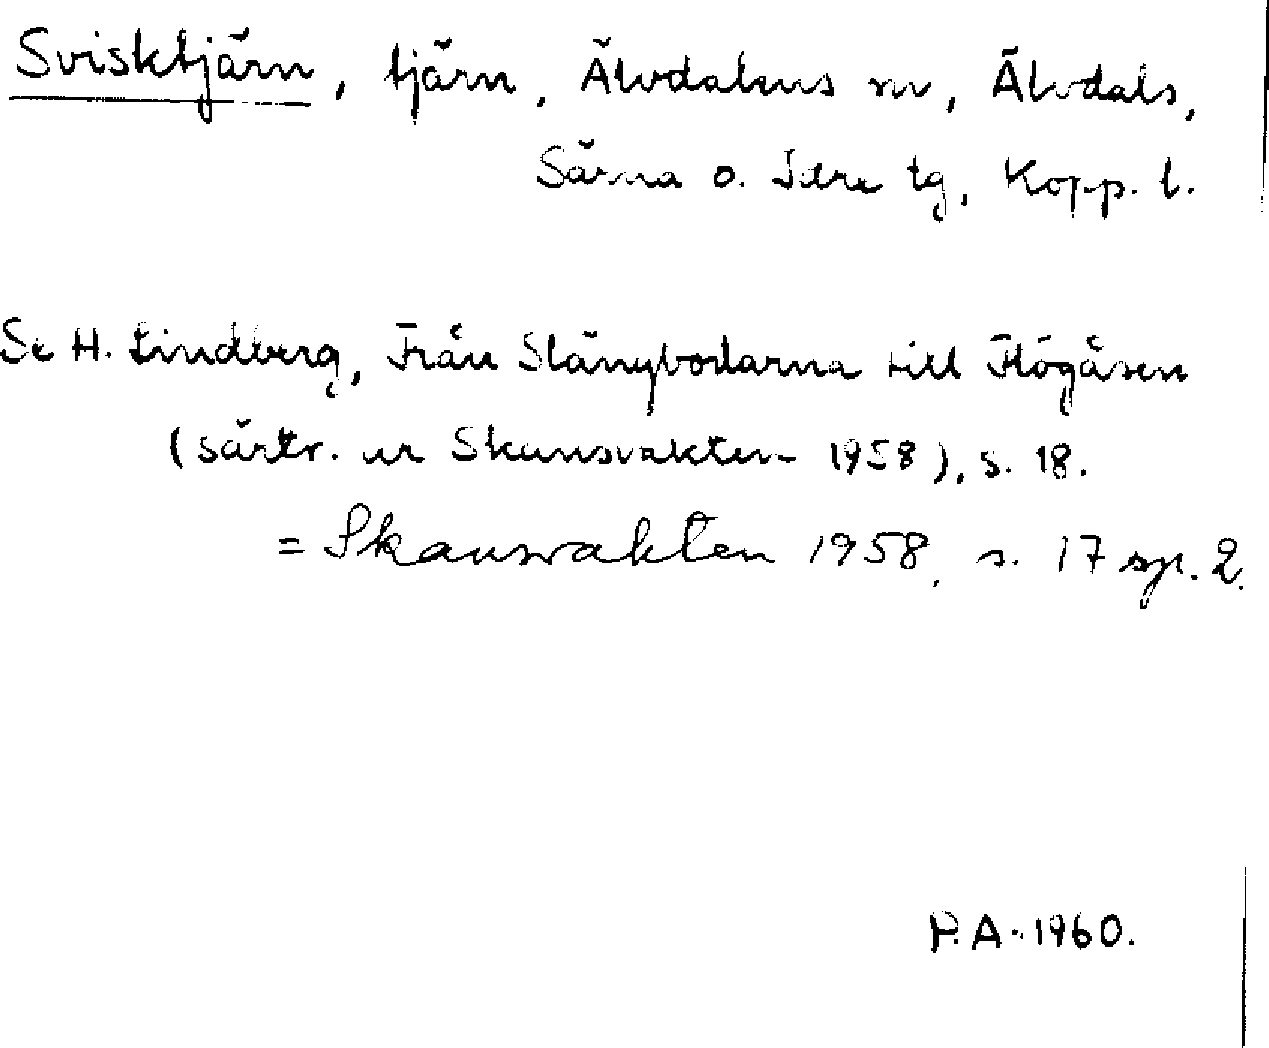 Svisktjärn, tjärn, Älvdalens sn, Älvdals,
Särna o. Idre tg, Kopp. l.
Se H. Lindberg, Från Slängbodarna till Flögåsen
(särtr. ur Skansvakten 1958), s. 18.
= Skansvakten 1958, s. 17 sp. 2.
P.A. 1960.